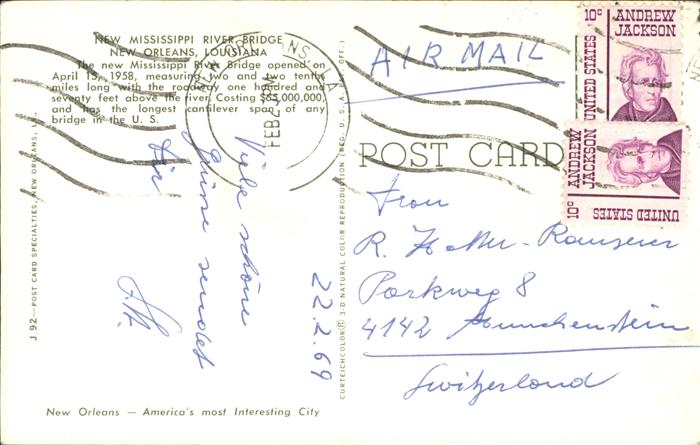 NEW MISSISSIPPI RIVER BRIDGE
NEW ORLEANS, LOUISIANA
The new Mississippi River Bridge opened on
April 15, 1958, measuring two and two tenths
miles long with the roadway one hundred and
seventy feet above the river. Costing $65,000,000,
and has the longest cantilever span of any
bridge in the U. S.
FEB 2 PM
AIR MAIL
10c ANDREW
JACKSON
UNITED STATES
10c ANDREW
JACKSON
UNITED STATES
POST CARD
Viele schöne
Grüsse sendet
Dir
22.2.69
Frau
R.
Parkweg 8
4142 Münchenstein
Switzerland
J 92—POST CARD SPECIALTIES, NEW ORLEANS,
CURTEICHCOLOR® 3-D NATURAL COLOR REPRODUCTION (REG. U.S.A. PAT. OFF.)
New Orleans — America's most Interesting City